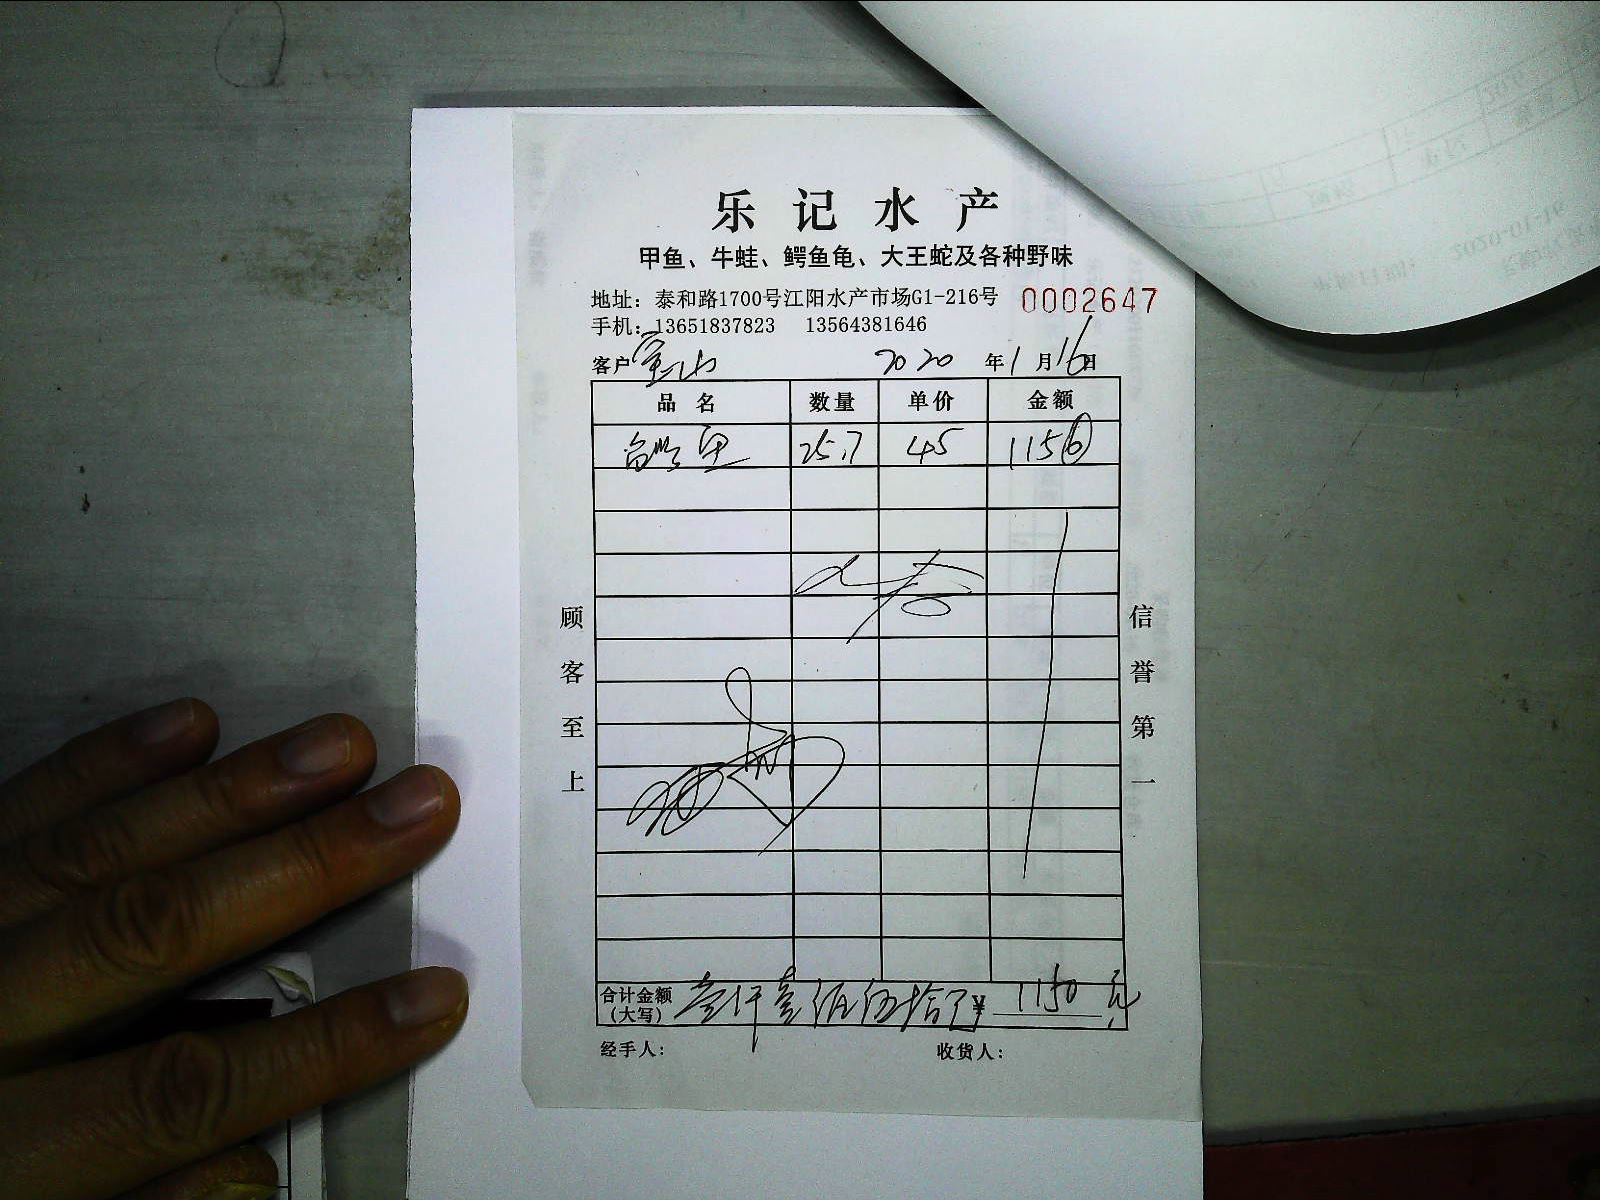 乐记水产
甲鱼、牛蛙、鳄鱼龟、大王蛇及各种野味
地址：泰和路1700号江阳水产市场G1-216号 0002647
手机：13651837823 13564381646
客户 宝山 2020 年 1 月 16 日
品名 数量 单价 金额
25.7 45 1156
顾客至上
信誉第一
合计金额 壹仟壹佰伍拾 ¥ 1150 元
（大写）
经手人： 收货人：